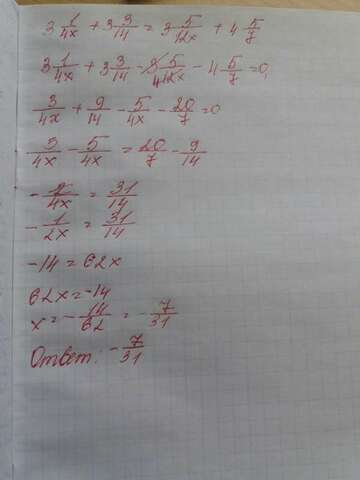 3 1/4x + 3 3/14 = 3 5/12x + 4 5/7
3 1/4x + 3 3/14 - 3 5/12x - 4 5/7 = 0,
3/4x + 9/14 - 5/4x - 20/7 = 0
3/4x - 5/4x = 20/7 - 9/14
- 2/4x = 31/14
- 1/2x = 31/14
-14 = 62x
62x = -14
x = - 14/62 = - 7/31
Ответ: - 7/31